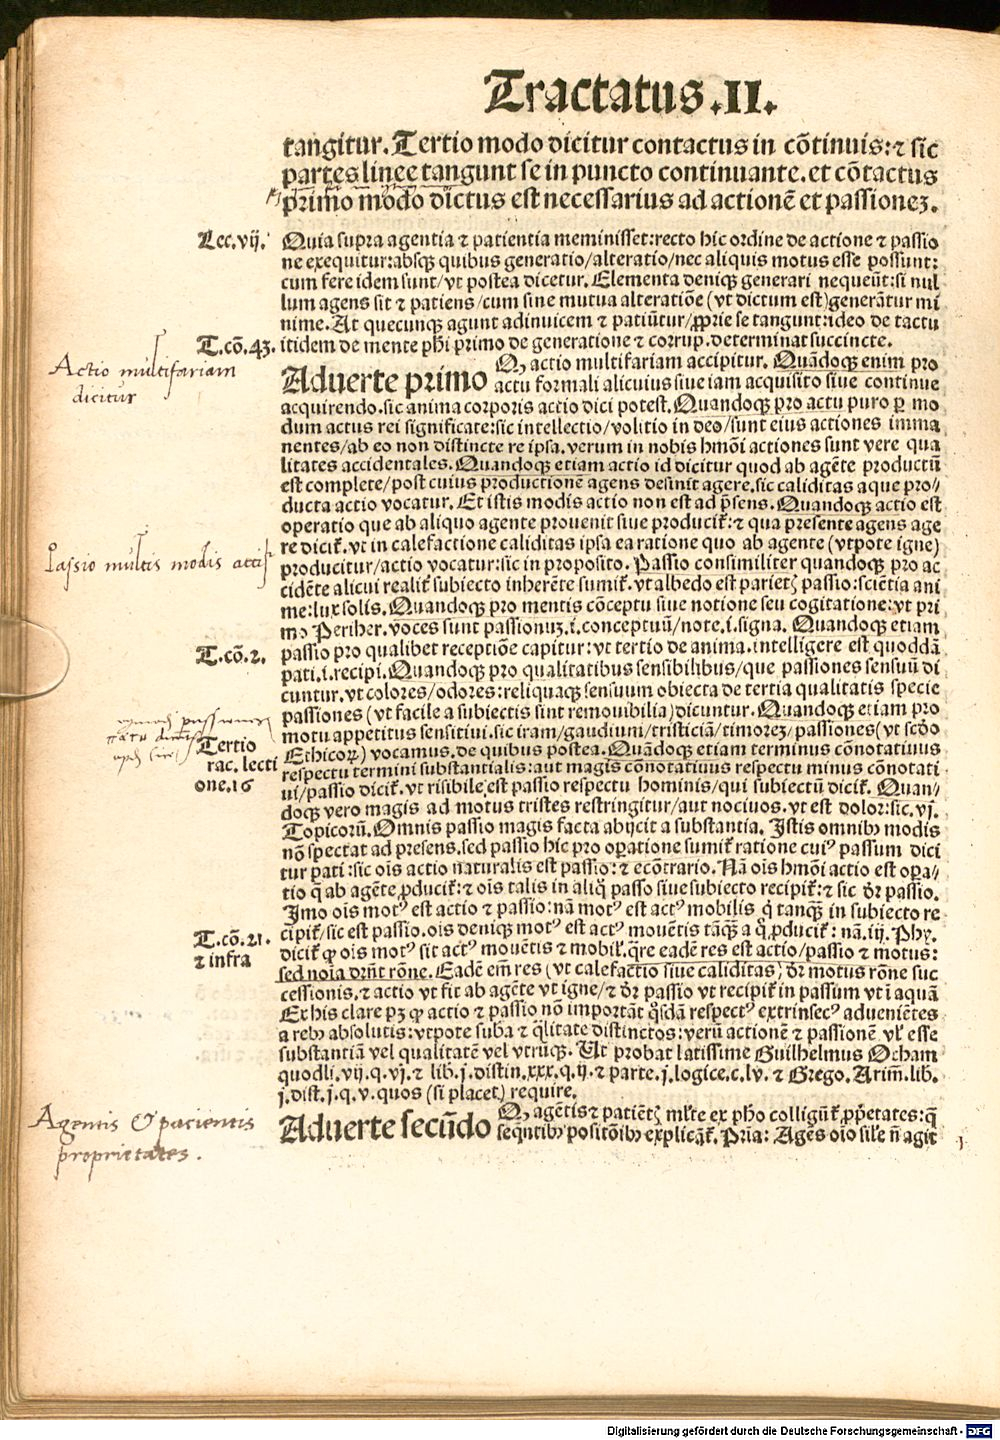 Tractatus.II.
tangitur. Tertio modo dicitur contactus in cõtinuis: ⁊ sic
partes linee tangunt se in puncto continuante. et cõtactus
primo modo dictus est necessarius ad actionẽ et passioneʒ.
Lec.vij.
Quia supra agentia ⁊ patientia meminisset: recto hic ordine de actione ⁊ passio
ne exequitur: absqꝫ quibus generatio/alteratio/nec aliquis motus esse possunt:
cum fere idem sunt/vt postea dicetur. Elementa deniqꝫ generari nequeũt: si nul
lum agens sit ⁊ patiens/cum sine mutua alteratiõe (vt dictum est) generãtur mi
nime. At quecunqꝫ agunt adinuicem ⁊ patiũtur/ꝓprie se tangunt: ideo de tactu
T.cõ.43.
itidem de mente phi primo de generatione ⁊ corrup. determinat succincte.
Actio multifariam
dicitur
Aduerte primo
Qꝫ actio multifariam accipitur. Quãdoqꝫ enim pro
actu formali alicuius siue iam acquisito siue continue
acquirendo. sic anima corporis actio dici potest. Quandoqꝫ pro actu puro ꝑ mo
dum actus rei significate: sic intellectio/volitio in deo/sunt eius actiones imma
nentes/ab eo non distincte re ipsa. verum in nobis hmõi actiones sunt vere qua
litates accidentales. Quandoqꝫ etiam actio id dicitur quod ab agẽte productũ
est complete/post cuius productionẽ agens desinit agere. sic caliditas aque pro//
ducta actio vocatur. Et istis modis actio non est ad p̃sens. Quandoqꝫ actio est
operatio que ab aliquo agente prouenit siue producit᷑: ⁊ qua presente agens age
re dicit᷑. vt in calefactione caliditas ipsa ea ratione quo ab agente (vtpote igne)
Passio multis modis accip
producitur/actio vocatur: sic in proposito. Passio consimiliter quandoqꝫ pro ac
cidẽte alicui realit᷑ subiecto inherẽte sumit᷑. vt albedo est parietꝭ passio: sciẽtia ani
me: lux solis. Quandoqꝫ pro mentis cõceptu siue notione seu cogitatione: vt pri
mo Periher. voces sunt passionuʒ .i. conceptuũ/note .i. signa. Quandoqꝫ etiam
T.cõ.2.
passio pro qualibet receptiõe capitur: vt tertio de anima. intelligere est quoddã
pati .i. recipi. Quandoqꝫ pro qualitatibus sensibilibus/que passiones sensuũ di
cuntur. vt colores/odores: reliquaqꝫ sensuum obiecta de tertia qualitatis specie
passiones (vt facile a subiectis sint remouibilia) dicuntur. Quandoqꝫ etiam pro
motu appetitus sensitiui. sic iram/gaudiuni/tristiciã/timoreʒ/passiones (vt scđo
Tertio
rac. lecti
one.16
Ethicoꝝ) vocamus. de quibus postea. Quãdoqꝫ etiam terminus cõnotatiuus
respectu termini substantialis: aut magis cõnotatiuus respectu minus cõnotati
ui/passio dicit᷑. vt risibile est passio respectu hominis/qui subiectũ dicit᷑. Quan/
doqꝫ vero magis ad motus tristes restringitur/aut nociuos. vt est dolor: sic .vj.
Topicorũ. Omnis passio magis facta abijcit a substantia. Istis omnibꝫ modis
nõ spectat ad presens. sed passio hic pro oꝑatione sumit᷑ ratione cuiꝰ passum dici
tur pati: sic oĩs actio naturalis est passio: ⁊ ecõtrario. Nã oĩs hmõi actio est oꝑa/
tio q̃ ab agẽte ꝓducit᷑: ⁊ oĩs talis in aliq̃ passo siue subiecto recipit᷑: ⁊ sic dr̃ passio.
Imo oĩs motꝰ est actio ⁊ passio: nã motꝰ est actꝰ mobilis q̃ tanqꝫ̃ in subiecto re
T.cõ.21.
⁊ infra
cipit᷑/sic est passio. oĩs deniqꝫ motꝰ est actꝰ mouẽtis tãqꝫ̃ a q̃ ꝓducit᷑: nã .iij. Phy.
dicit᷑ ꝙ oĩs motꝰ sit actꝰ mouẽtis ⁊ mobil᷑. q̃re eadẽ res est actio/passio ⁊ motus:
sed noĩa drñt rõne. Eadẽ em̃ res (vt calefactio siue caliditas) dr̃ motus rõne suc
cessionis. ⁊ actio vt fit ab agẽte vt igne/⁊ dr̃ passio vt recipit᷑ in passum vt ĩ aquã
Ex his clare pꝫ ꝙ actio ⁊ passio nõ importãt q̃sdã respectꝰ extrinsecꝰ adueniẽtes
a rebꝫ absolutis: vtpote suba ⁊ q̃litate distinctos: verũ actionẽ ⁊ passionẽ vl᷑ esse
substantiã vel qualitatẽ vel vtrũqꝫ. Ut probat latissime Guilhelmus Ocham
quodli. vij. q. vj. ⁊ lib. j. distin. xxx. q. ij. ⁊ parte. j. logice. c. lv. ⁊ Grego. Arim̃. lib.
j. dist. j. q. v. quos (si placet) require.
Agentis & pacientis
proprietates.
Aduerte secũdo
Qꝫ agẽtis ⁊ patiẽtꝭ ml̃te ex pho colligũt᷑ ꝓprietates: q̃
seqñtibꝫ positõibꝫ explicãt᷑. Pria: Agẽs oĩo sil̃e nõ agit
Digitalisierung gefördert durch die Deutsche Forschungsgemeinschaft - DFG